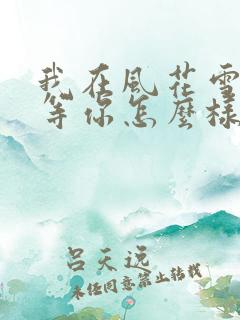 我在風花雪
等你怎麼樣
呂天逸
未任同意禁止转载